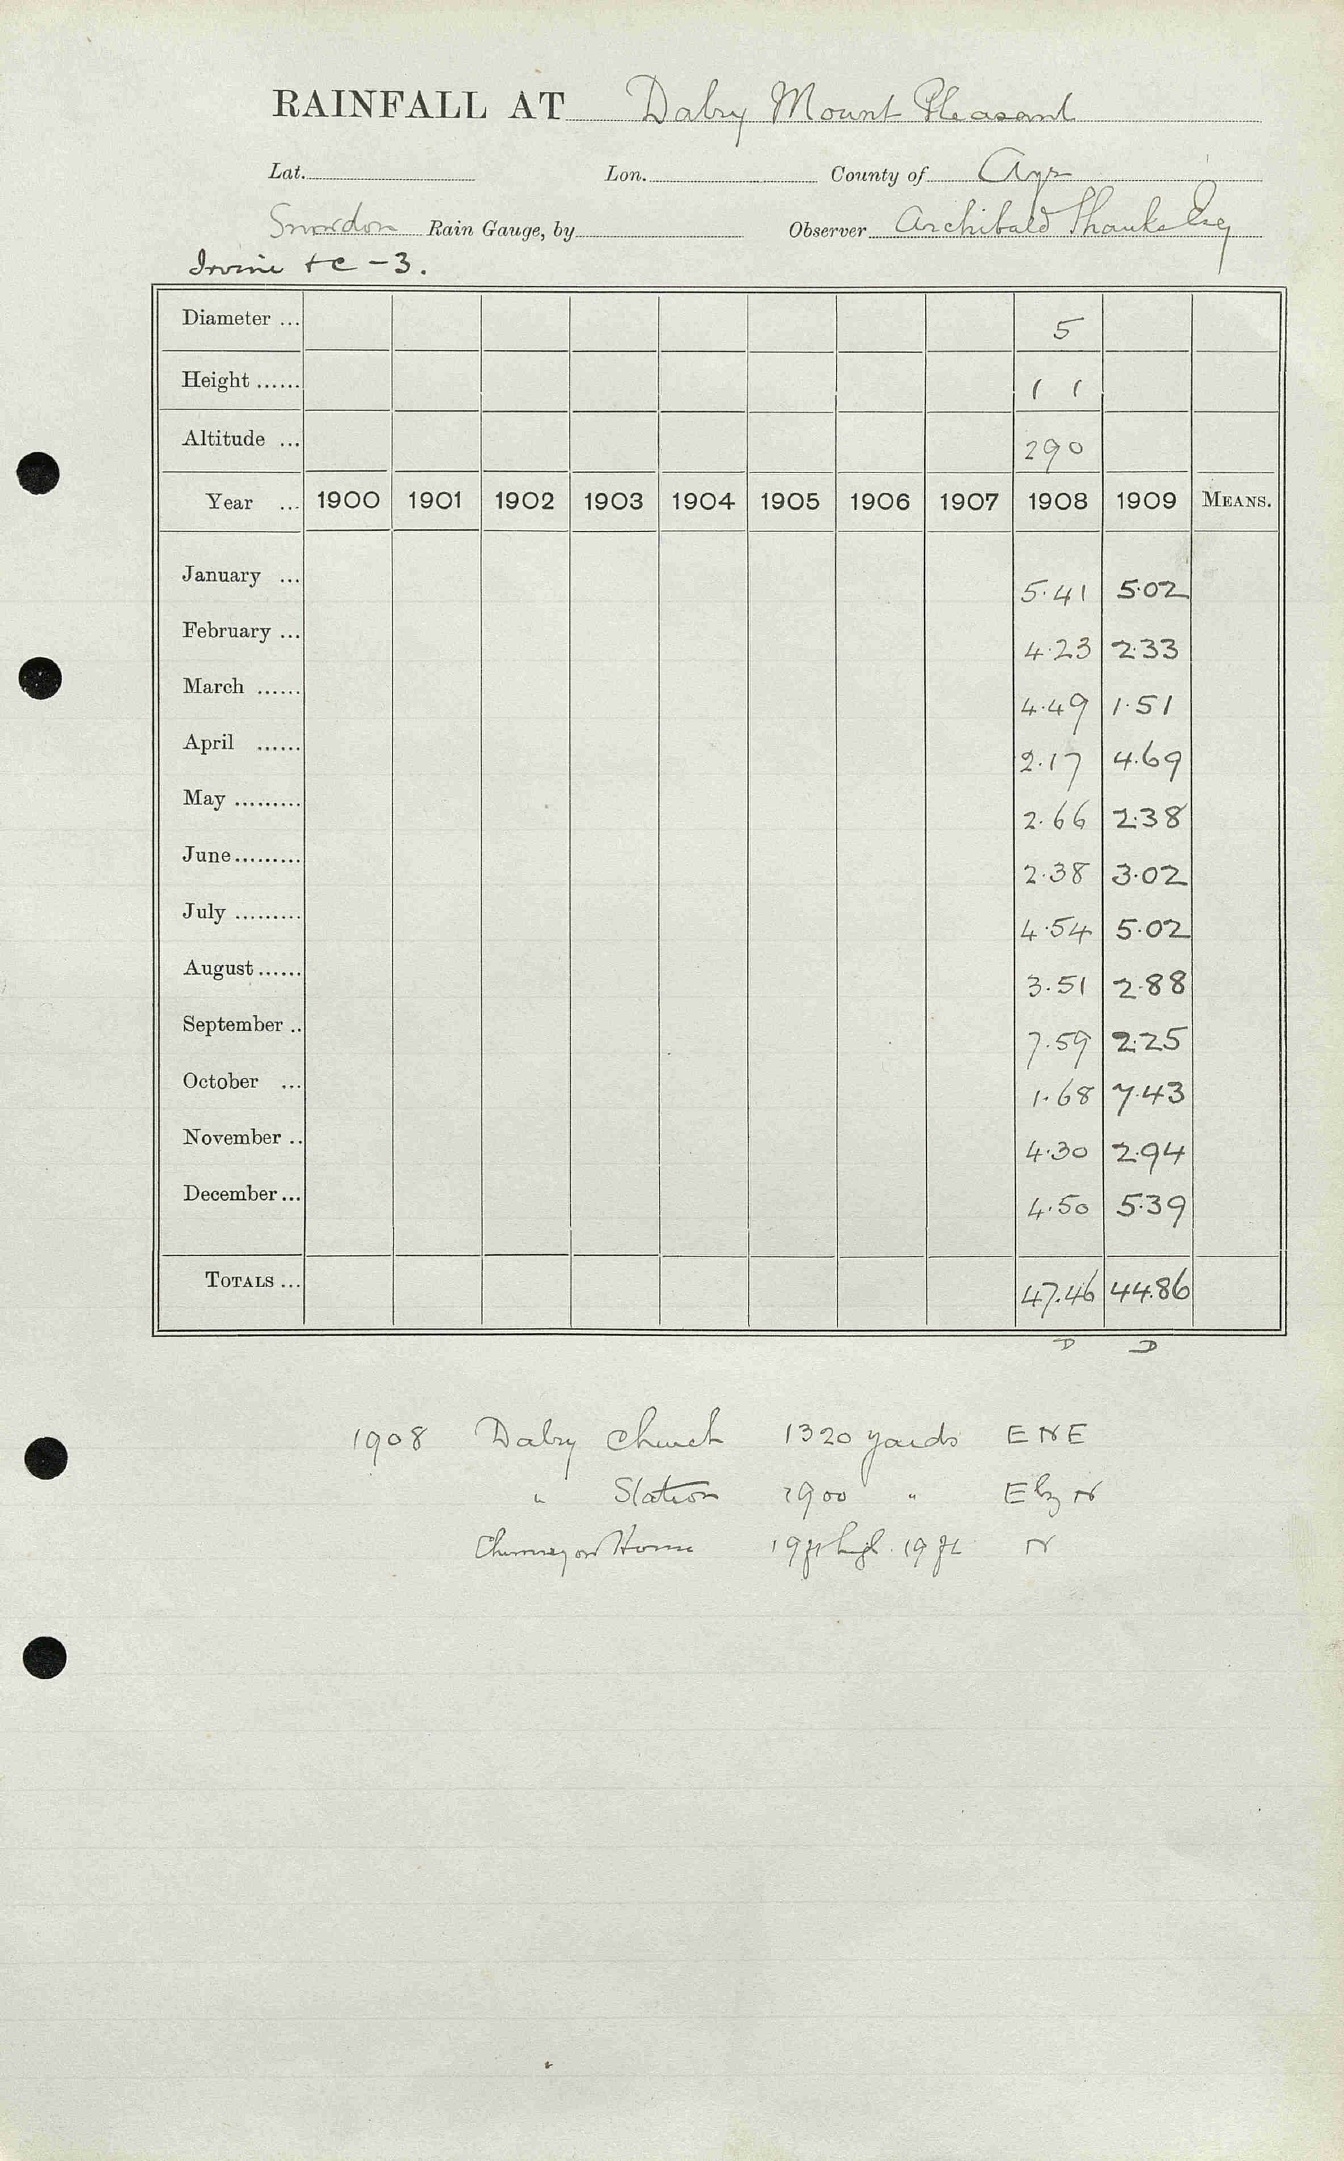 RAINFALL AT Dalry Mount Pleasant
Lat. Lon. County of Ayr
Snowdon Rain Gauge, by Observer Archibald Shanks Esq
Irvine &c -3.
Diameter ... 5
Height ...... 1 1
Altitude ... 290
Year ... 1900 1901 1902 1903 1904 1905 1906 1907 1908 1909 MEANS.
January ... 5.41 5.02
February ... 4.23 2.33
March ...... 4.49 1.51
April ...... 2.17 4.69
May ......... 2.66 2.38
June......... 2.38 3.02
July ......... 4.54 5.02
August...... 3.51 2.88
September .. 7.59 2.25
October ... 1.68 7.43
November .. 4.30 2.94
December... 4.50 5.39
TOTALS ... 47.46 44.86
D D
1908 Dalry Church 1320 yards ENE
" Station 1900 " E by N
Chimney on House 19 ft high. 19 ft N